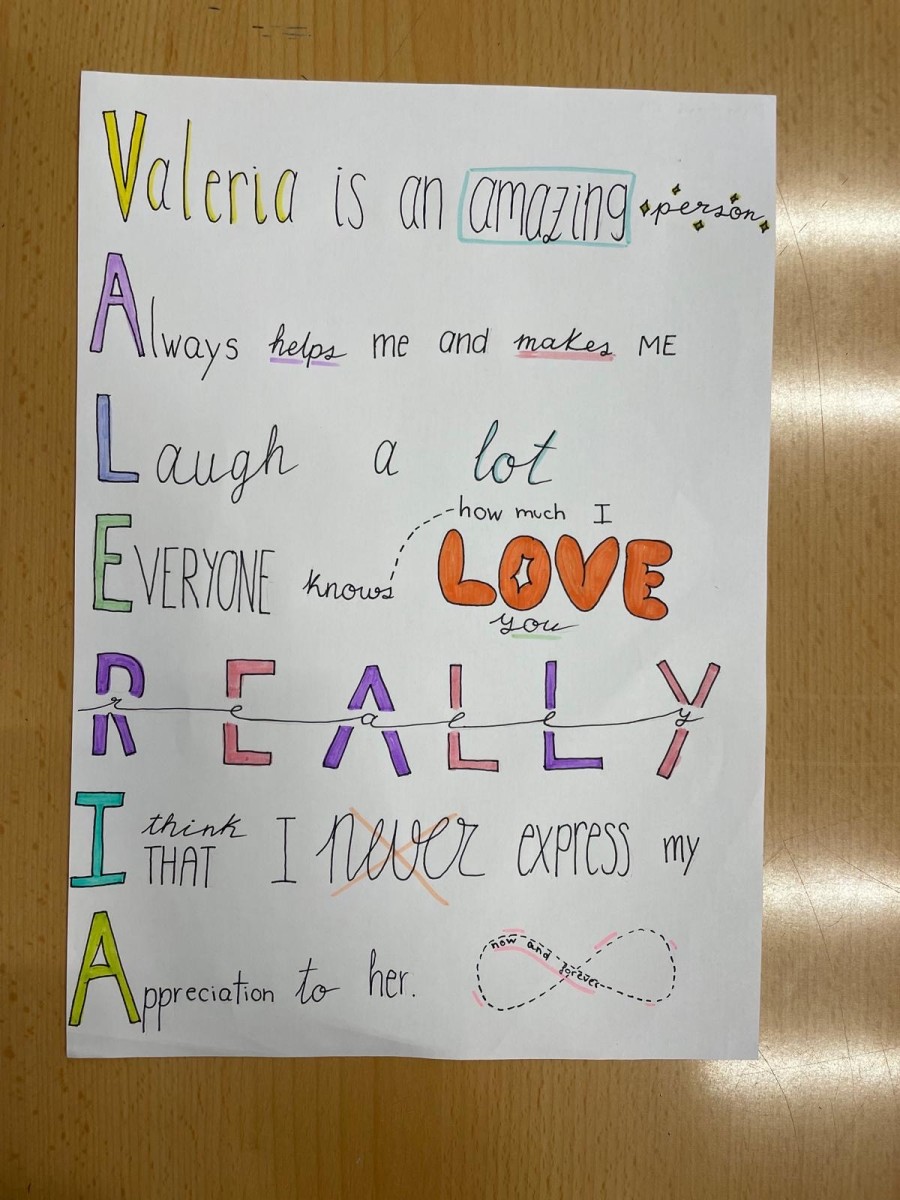 Valeria is an amazing person
Always helps me and makes ME
Laugh a lot
how much I
EVERYONE knows LOVE
you
REALLY
really
think
I THAT I never express my
Appreciation to her.
now and forever